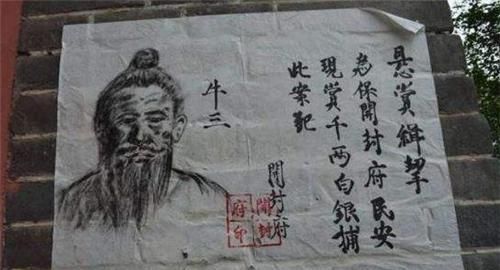 悬賞緝拏
為保開封府民安
現賞千两白銀捕
此案犯
開封府
牛三
開封
府印